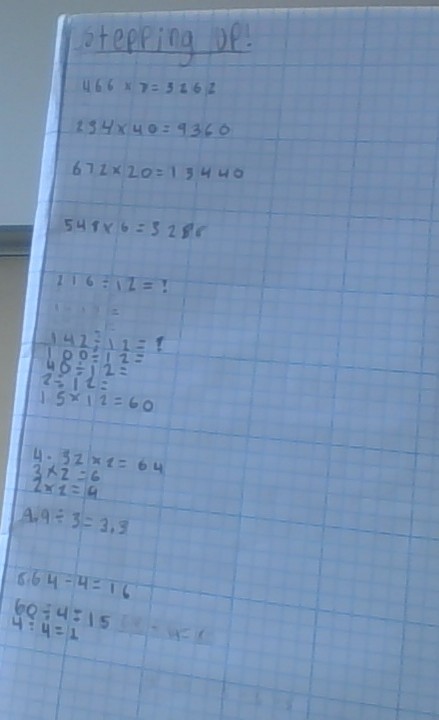 Stepping UP!
466 x 7 = 3262
234 x 40 = 9360
672 x 20 = 13440
548 x 6 = 328
216 ÷ 12 = ?
142 ÷ 12 = ?
100 ÷ 12 =
40 ÷ 12 =
2 ÷ 12 =
15 x 12 = 60
4. 32 x 2 = 64
3 x 2 = 6
2 x 2 = 4
9.9 ÷ 3 = 3.3
64 ÷ 4 = 16
60 ÷ 4 = 15
4 ÷ 4 = 1